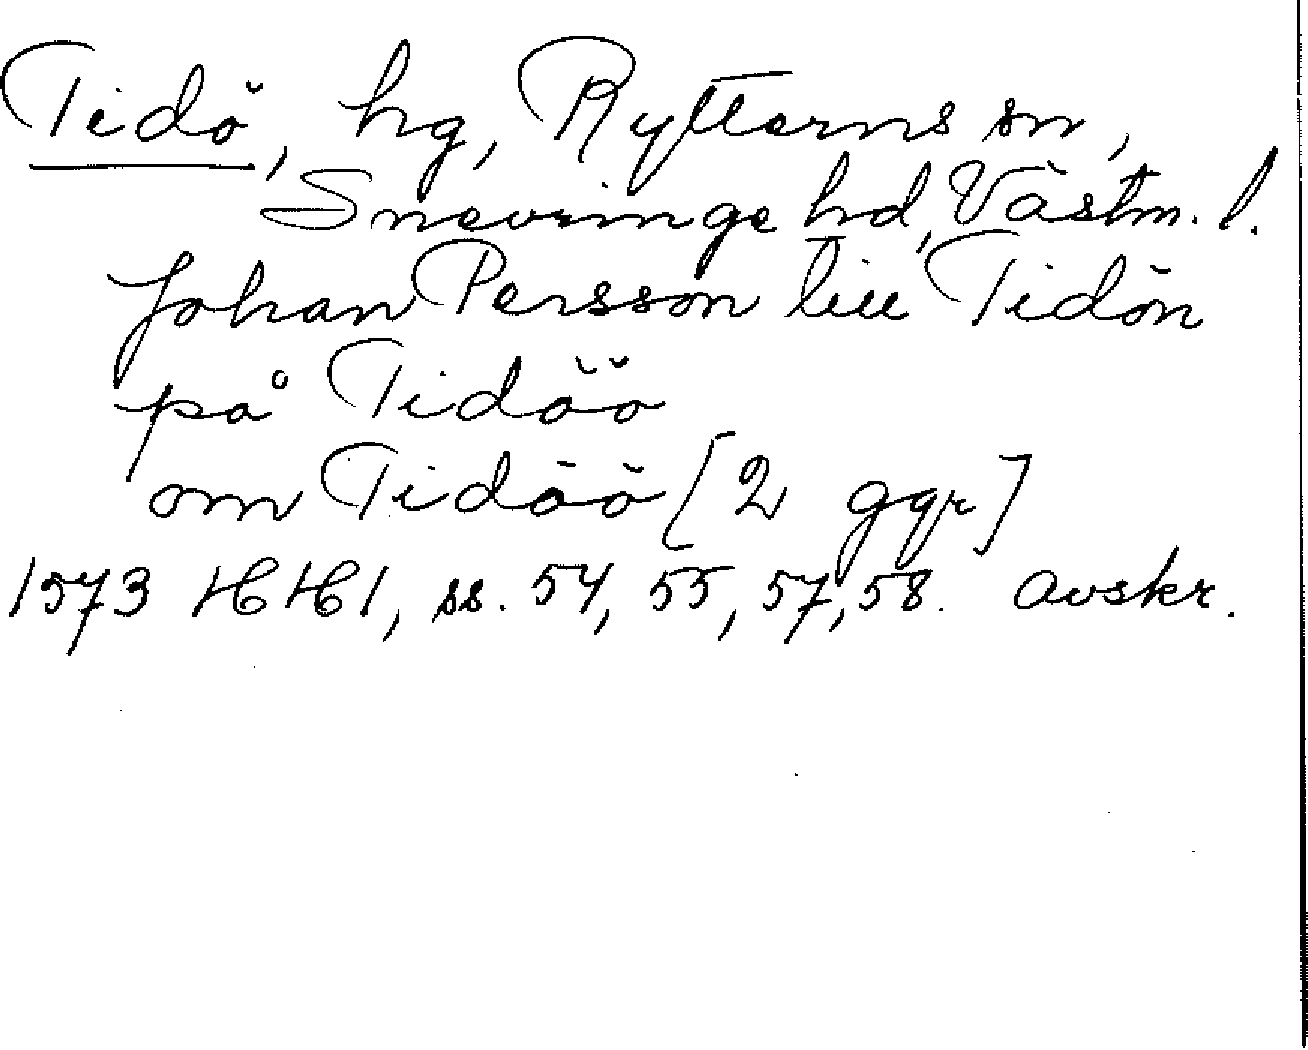 Tidö, hg, Rytterns sn,
Snevringe hd, Västm. l.
Johan Persson till Tidön
på Tidöö
om Tidöö [2 ggr]
1573 HH1, ss. 54, 55, 57, 58. avskr.